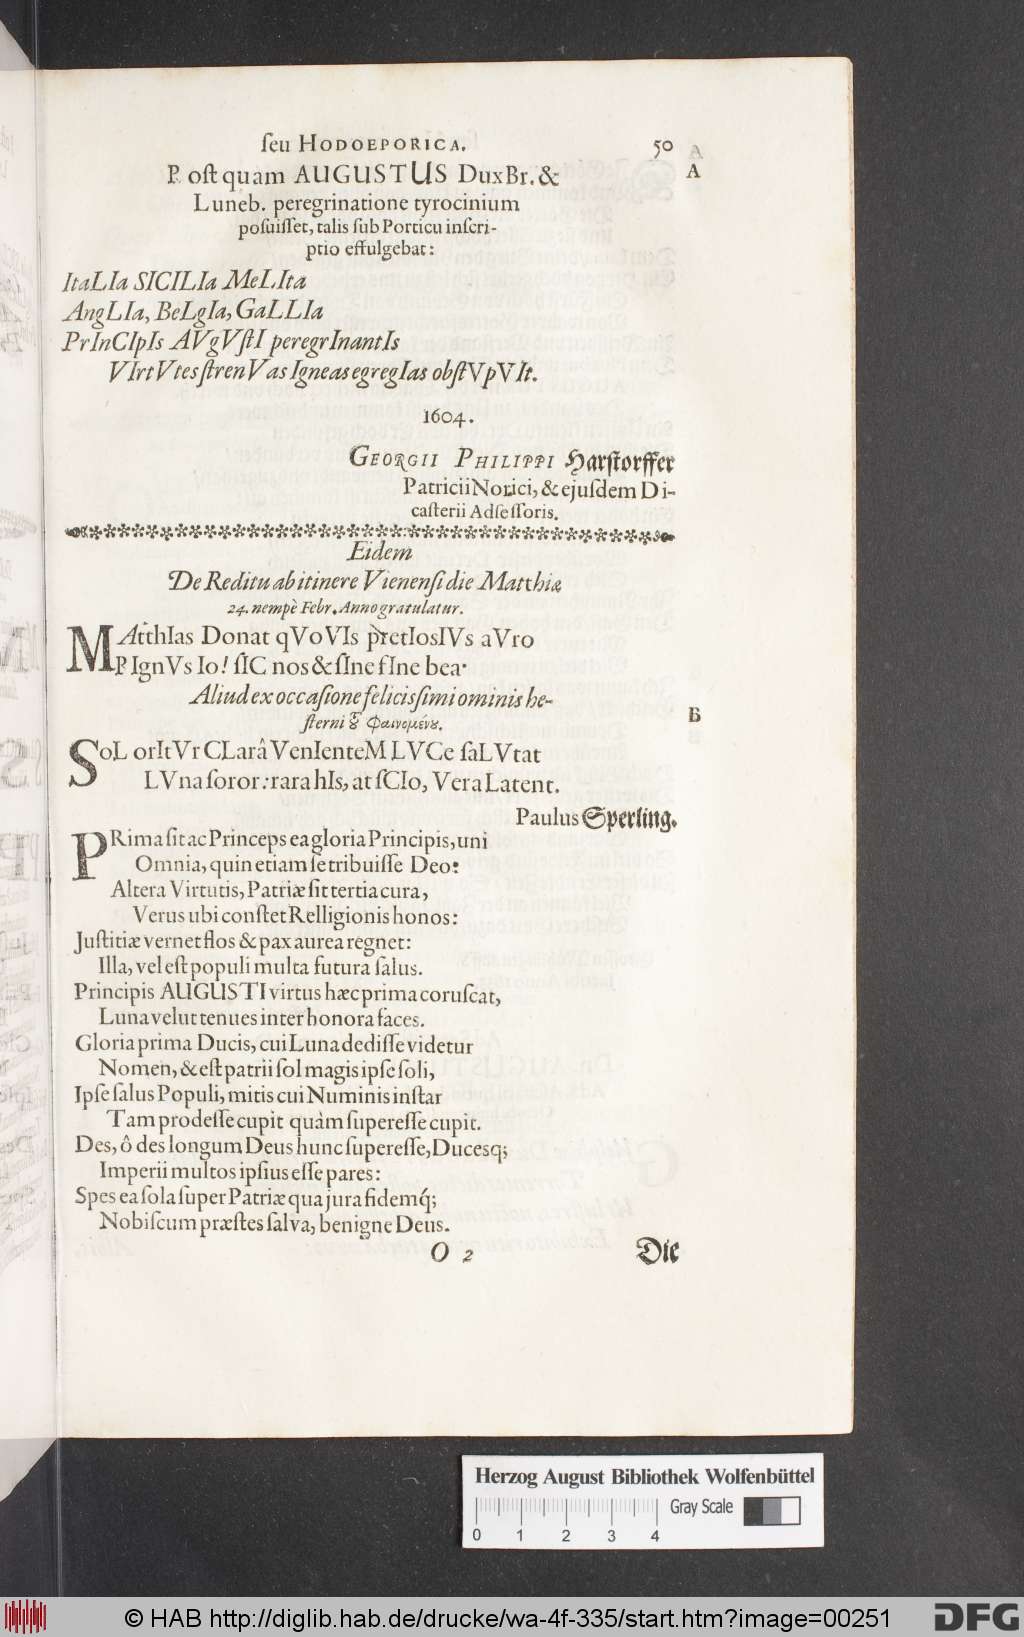 ſeu HODOEPORICA. 50
P. oſt quam AUGUSTUS Dux Br. & A
Luneb. peregrinatione tyrocinium
poſuiſſet, talis ſub Porticu inſcri-
ptio effulgebat:
ItaLIa SICILIa MeLIta
AngLIa, BeLgIa, GaLLIa
PrInCIpIs AVgVſtI peregrInantIs
VIrtVtes ſtrenVas Igneas egregIas obſtVpVIt.
1604.
GEORGII PHILIPPI Harſtorffer
Patricii Norici, & ejuſdem Di-
caſterii Adſeſſoris.
Eidem
De Reditu ab itinere Vienenſi die Matthiæ
24. nempè Febr. Anno gratulatur.
MAtthIas Donat qVoVIs pretIosIVs aVro
PIgnVs Io! ſIC nos & ſIne fIne bea.
Aliud ex occaſione feliciſſimi ominis he-
ſterni ȣ͂ Φαινομένȣ. B
SoL orItVr CLarâ VenIenteM LVCe ſaLVtat
LVna ſoror: rara hIs, at ſCIo, Vera Latent.
Paulus Sperling.
PRima ſit ac Princeps ea gloria Principis, uni
Omnia, quin etiam ſe tribuiſſe Deo:
Altera Virtutis, Patriæ ſit tertia cura,
Verus ubi conſtet Relligionis honos:
Juſtitiæ vernet flos & pax aurea regnet:
Illa, vel eſt populi multa futura ſalus.
Principis AUGUSTI virtus hæc prima coruſcat,
Luna velut tenues inter honora faces.
Gloria prima Ducis, cui Luna dediſſe videtur
Nomen, & eſt patrii ſol magis ipſe ſoli,
Ipſe ſalus Populi, mitis cui Numinis inſtar
Tam prodeſſe cupit quàm ſupereſſe cupit.
Des, ô des longum Deus hunc ſupereſſe, Ducesq;
Imperii multos ipſius eſſe pares:
Spes ea ſola ſuper Patriæ qua jura fidemq́;
Nobiſcum præſtes ſalva, benigne Deus.
O 2 Die
Herzog August Bibliothek Wolfenbüttel
Gray Scale
0 1 2 3 4
© HAB http://diglib.hab.de/drucke/wa-4f-335/start.htm?image=00251
DFG